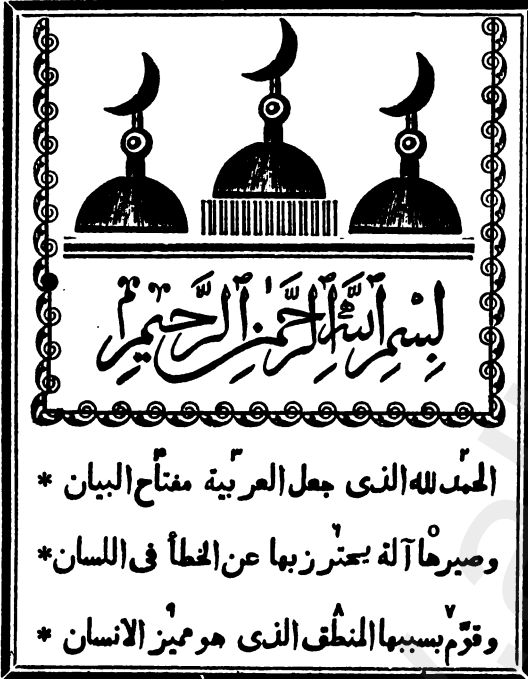 بِسْمِ اللَّهِ الرَّحْمٰنِ الرَّحِيمِ
الحمد ٢ لله الذى جعل العربية ٣ مفتاح ٤ البيان *
وصيرها ٥ آلة يحترز ٦ بها عن الخطأ فى اللسان *
وقوّم ٧ بسببها المنطق ٨ الذى هو مميز ٩ الانسان *